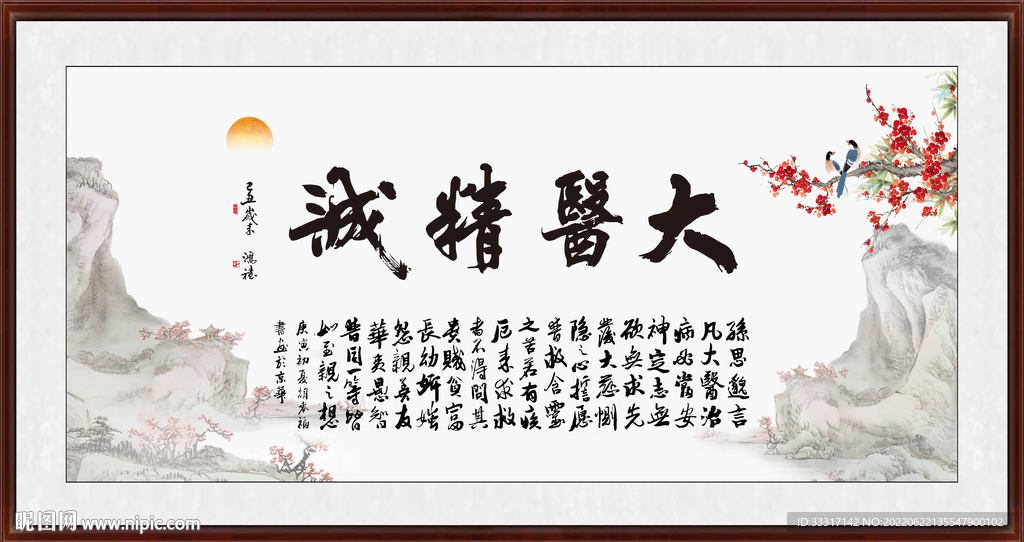 大醫精誠
己丑歲末
孫思邈言
凡大醫治
病必當安
神定志無
欲無求先
發大慈惻
隐之心誓愿
普救含靈
之苦若有疾
厄来求救
者不得問其
貴賤貧富
長幼妍媸
怨親善友
華夷愚智
普同一等皆
如至親之想
庚寅初夏胡
書於京華
昵图网 www.nipic.com
ID:33317142 NO:20220622135547900102